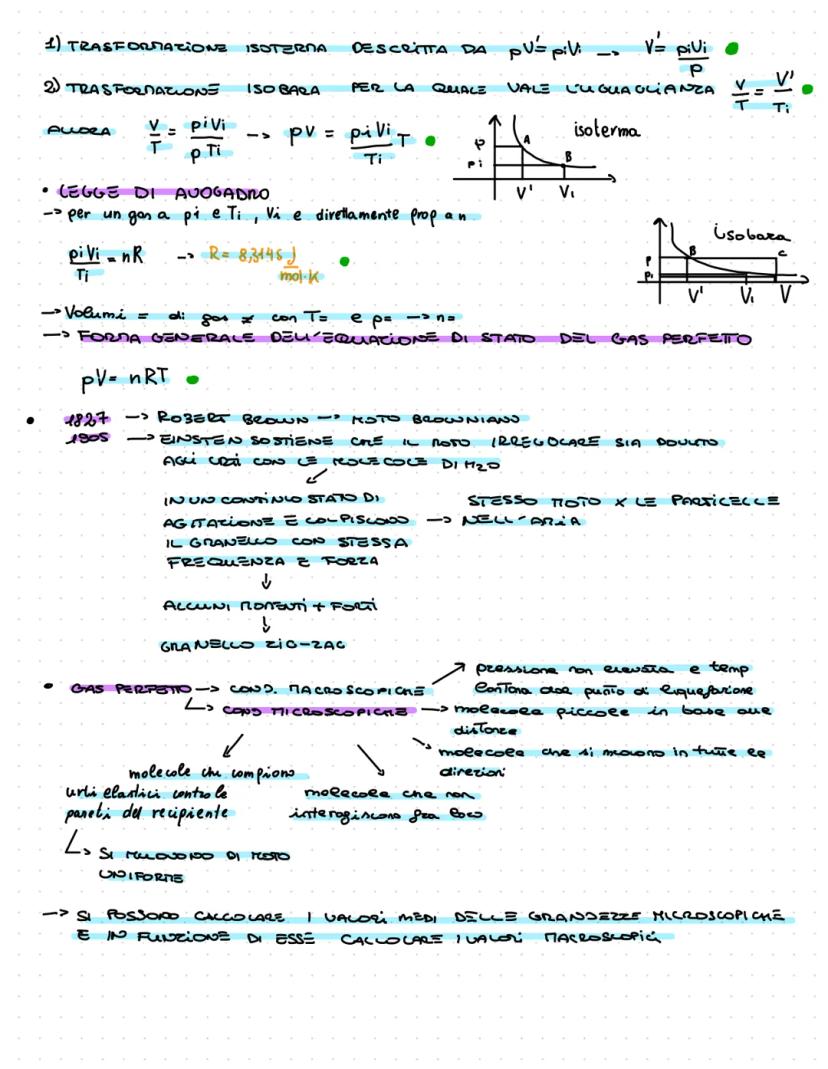 1) TRASFORMAZIONE ISOTERMA DESCRITTA DA pV'= piVi -> V'= piVi/p
2) TRASFORMAZIONE ISOBARA PER LA QUALE VALE L'UGUAGLIANZA V/T = V'/Ti
ALLORA V/T = piVi/pTi -> pV = piVi/Ti T
isoterma
p A
pi B
V' V1
• LEGGE DI AVOGADRO
-> per un gas a pi e Ti, Vi e direttamente prop a n
piVi/Ti = nR -> R= 8,3145 J/mol·K
isobara
p B C
pi
V' V1 V
-> Volumi = di gas ≠ con T= e p= -> n=
-> FORMA GENERALE DELL'EQUAZIONE DI STATO DEL GAS PERFETTO
pV= nRT
• 1827 -> ROBERT BROWN -> MOTO BROWNIANO
1905 -> EINSTEN SOSTIENE CHE IL MOTO IRREGOLARE SIA DOVUTO
AGLI URTI CON LE MOLECOLE DI H2O
IN UN CONTINUO STATO DI
AGITAZIONE E COLPISCONO -> STESSO MOTO X LE PARTICELLE
NELL'ARIA
IL GRANELLO CON STESSA
FREQUENZA E FORZA
ALCUNI MOMENTI + FORTI
GRANELLO ZIG-ZAG
• GAS PERFETTO -> COND. MACROSCOPICHE
pressione non elevata e temp
lontana dal punto di liquefazione
COND MICROSCOPICHE -> molecole piccole in base alle
distanze
molecole che si muovono in tutte le
direzioni
molecole che compiono
urti elastici contro le
pareti del recipiente
molecole che non
interagiscono fra loro
SI MUOVONO DI MOTO
UNIFORME
-> SI POSSONO CALCOLARE I VALORI MEDI DELLE GRANDEZZE MICROSCOPICHE
E IN FUNZIONE DI ESSE CALCOLARE I VALORI MACROSCOPICI